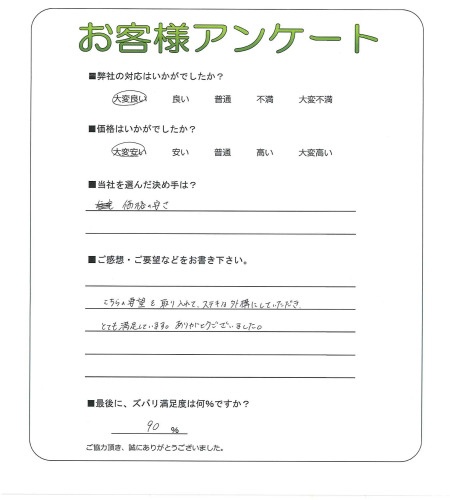 お客様アンケート
■弊社の対応はいかがでしたか？
大変良い 良い 普通 不満 大変不満
■価格はいかがでしたか？
大変安い 安い 普通 高い 大変高い
■当社を選んだ決め手は？
価格の安さ
■ご感想・ご要望などをお書き下さい。
こちらの要望を取り入れて、ステキな外構にしていただき、
とても満足しています。ありがとうございました。
■最後に、ズバリ満足度は何%ですか？
90 %
ご協力頂き、誠にありがとうございました。